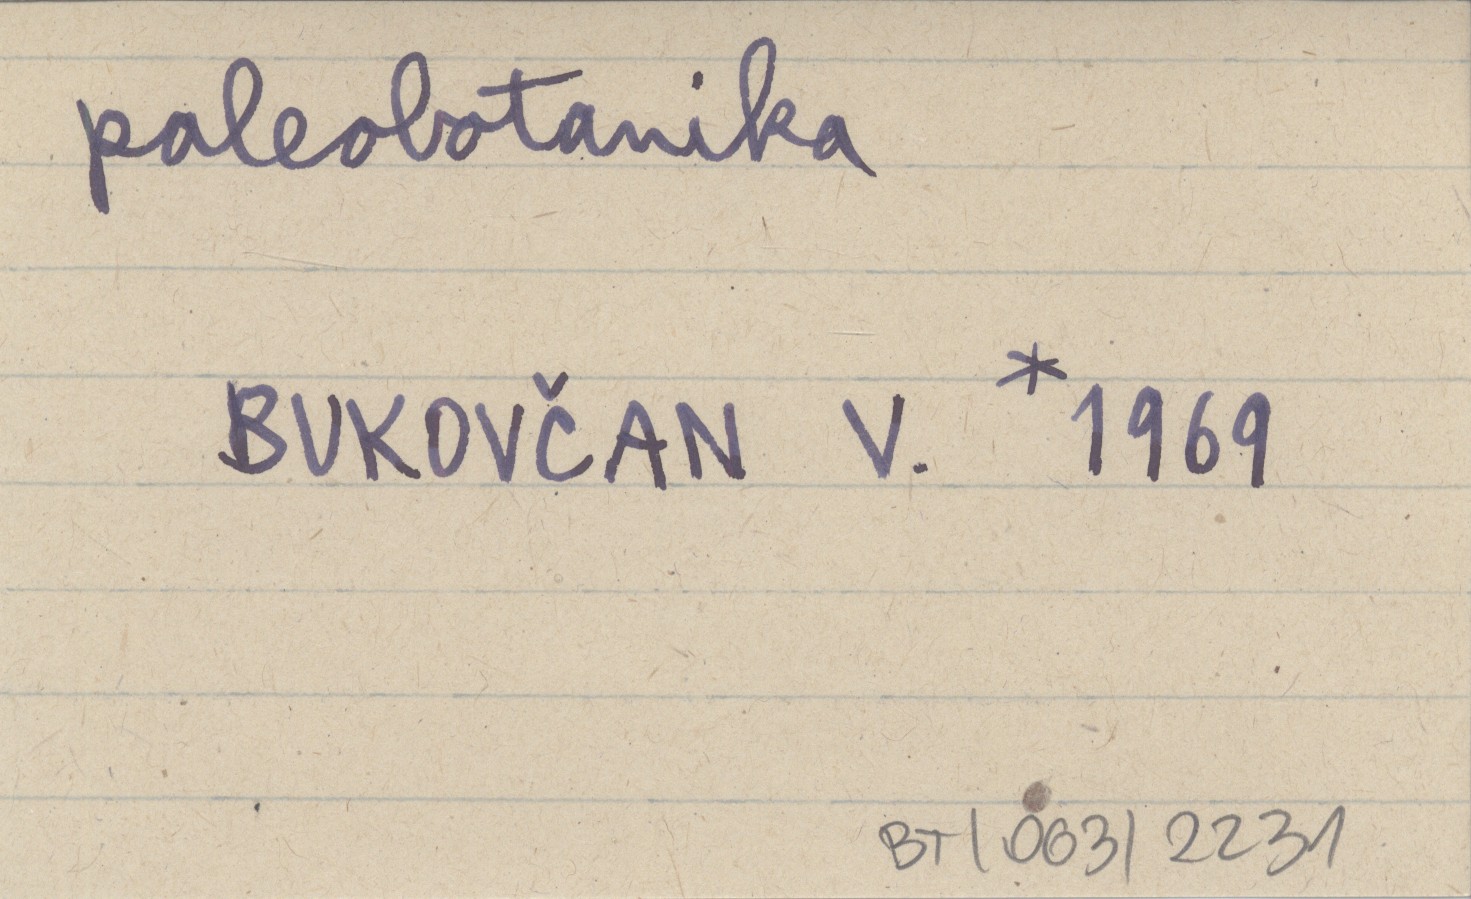 paleobotanika
BUKOVČAN V. *1969
BT/063/2231